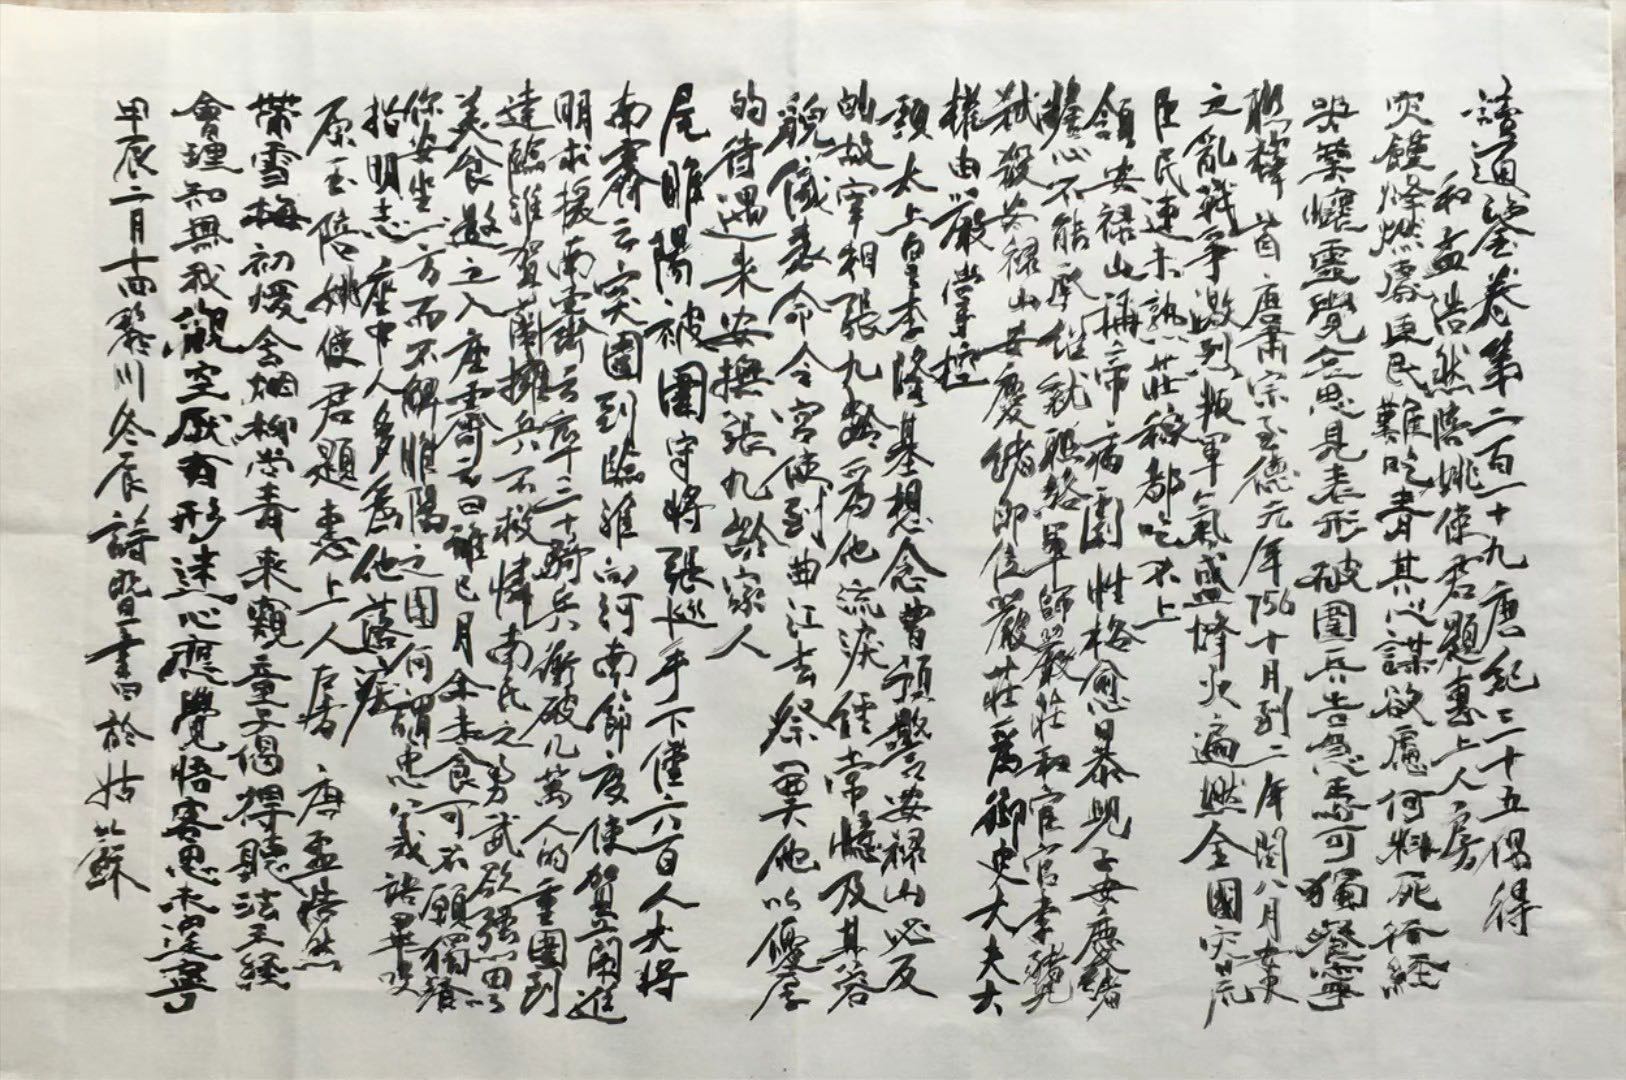 讀通鑒卷第二百一十九唐紀三十五偶得
和孟浩然陪姚使君題惠上人房
突饉烽燃處 更民難吃青 其心謀欲慮 何料死行經
安覺念思見 老形破圍兵 告 可獨餐寧
唐肅宗至德元年756十月到二年閏八月安史
之亂戰爭激烈叛軍氣盛烽火遍燃全國災荒
臣民連未熟莊稼都吃不上
領安禄山稱帝病劇性格愈暴兒子安慶緒
擔心不能承繼就聯絡軍師嚴莊和宦官李豬兒
弒殺安禄山安慶緒即位嚴莊爲御史大夫大
權由嚴掌控
領太上皇李隆基想念曾預警安禄山必反
的故宰相張九齡爲他流淚經常憶及其容
貌儀表命令宮使到曲江去祭奠他以優厚
的待遇來安撫張九齡家人
尾睢陽被圍守將張巡手下僅六百人大將
南霽云突圍到臨淮向河南節度使賀蘭進
明求援南霽云率三十騎兵衝破几萬人的重圍到
達臨淮賀蘭擁兵不救憐南氏之勇武欲強留以
美食邀之入座霽云曰睢已月余未食可不願獨餐
你安坐一方而不解睢陽之圍何謂忠義語畢咬
指明志座中人多爲他落淚
原玉 陪姚使君題惠上人房 唐 孟浩然
帶雪梅初煖 含烟柳尚青 來窺童子偈 得聽法王經
會理知無我 觀空厭有形 迷心應覺悟 客思未遑寧
甲辰二月十四 黟川冬辰詩暨書於姑蘇